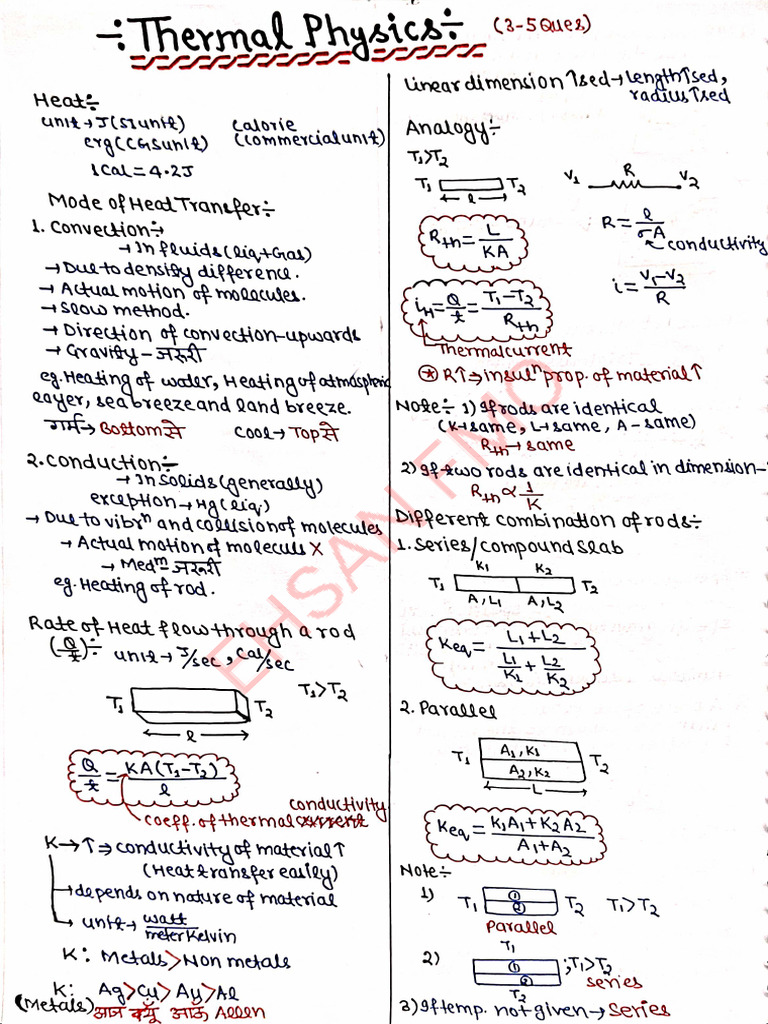 ÷Thermal Physics÷ (3-5Ques)
Heat÷
unit→J(SI unit) Calorie
erg(CGS unit) (Commercial unit)
1Cal=4.2J
Mode of Heat Transfer÷
1. Convection÷
→In fluids(liq+Gas)
→Due to density difference.
→Actual motion of molecules.
→Slow method.
→Direction of convection-upwards
→Gravity-जरूरी
eg.Heating of water, Heating of atmospheric
layer, sea breeze and land breeze.
गर्म→Bottom से Cool→Top से
2.Conduction÷
→In Solids(generally)
exception→Hg(liq)
→Due to vibrⁿ and collision of molecules
→Actual motion of molecule X
→Medᵐ-जरूरी
eg.Heating of rod.
Rate of Heat flow through a rod
(Q/t)÷ unit→J/sec, Cal/sec
T₁ T₂ T₁>T₂
l
Q/t = KA(T₁-T₂)/l
conductivity
coeff. of thermal current
K→↑⇒conductivity of material↑
(Heat transfer easily)
→depends on nature of material
→unit→watt/meter Kelvin
K: Metals>Non metals
K: Ag>Cu>Au>Al
(Metals) आज क्यूँ आऊ Allen
Linear dimension↑sed→Length↑sed,
radius↑sed
Analogy÷
T₁>T₂
T₁ T₂ V₁ R V₂
l
Rth = L/KA R = l/σA
conductivity
iH = Q/t = T₁-T₂/Rth i = V₁-V₂/R
Thermal current
⊛R↑⇒insulⁿ prop. of material↑
Note÷ 1) If rods are identical
(K→same, L→same, A-same)
Rth→same
2) If two rods are identical in dimension-
Rth ∝ 1/K
Different combination of rods÷
1. Series/compound slab
K₁ K₂
T₁ T₂
A,L₁ A,L₂
Keq = L₁+L₂ / (L₁/K₁ + L₂/K₂)
2. Parallel
T₁ A₁,K₁ T₂
A₂,K₂
L
Keq = K₁A₁+K₂A₂ / A₁+A₂
Note÷
1) T₁ ① ② T₂ T₁>T₂
Parallel
2) T₁
① ② ;T₁>T₂
Series
T₂
3) If temp. not given→Series
EHSAN FMO